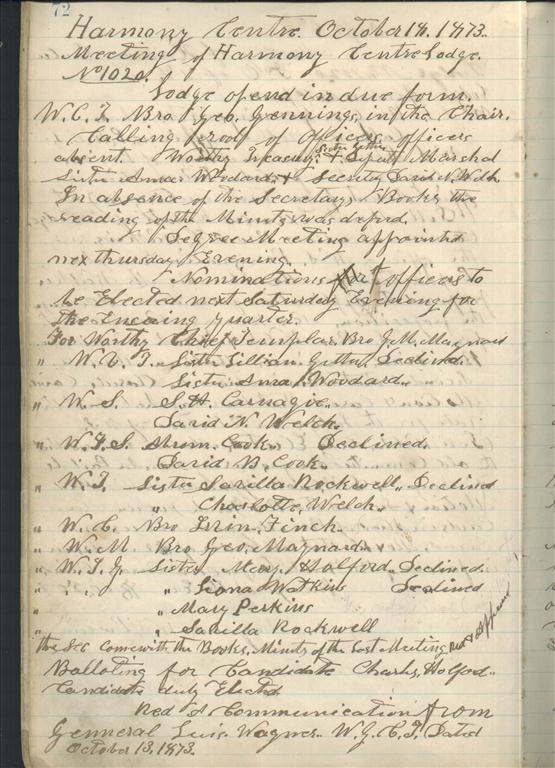 72
Harmony Centre October 18, 1873.
Meeting of Harmony Centre Lodge.
No 1020.
Lodge opend in due form.
W.C.T. Bro Geo. Gennings, in the Chair.
Calling rool of officers, officers
Sister Gettes
absent. Worthy Treasury. & Deputy Marshal
Sister Anna Woodard. & Secretary David N. Welch
In absence of the Secretarys Books the
reading of the Minits was deferd.
Degree Meeting appointed
next thursday Evening.
Nominations for officers to
be Elected next Saturday Evening for
the Encuing quarter.
For Worthy Chief Templar. Bro J. M. Maynard
" W. V. T. Sister Lillian Gettes, Declined.
Sister Anna Woodard.
" W. S. S. H. Carnagie.
David N. Welch.
" W. F. S. Cook. Declined.
David B. Cook.
" W. T. Sister Sarilla Rockwell, Declined
" Charlotte Welch.
" W. C. Bro Finch.
" W. M. Bro Geo. Maynard.
" W. I. G. Sister Mary Holford Declined.
" " " Watkins Declined
" " Mary Perkins
" " Sarilla Rockwell
the Sec Come with the Books, Minits of the Last Meeting Red &
Balloting for Candidate Charles Holford.
Candidate duly Elected
Red A Communication from
Genneral Luis Wagner. W. G. C. T. Dated
October 13, 1873.